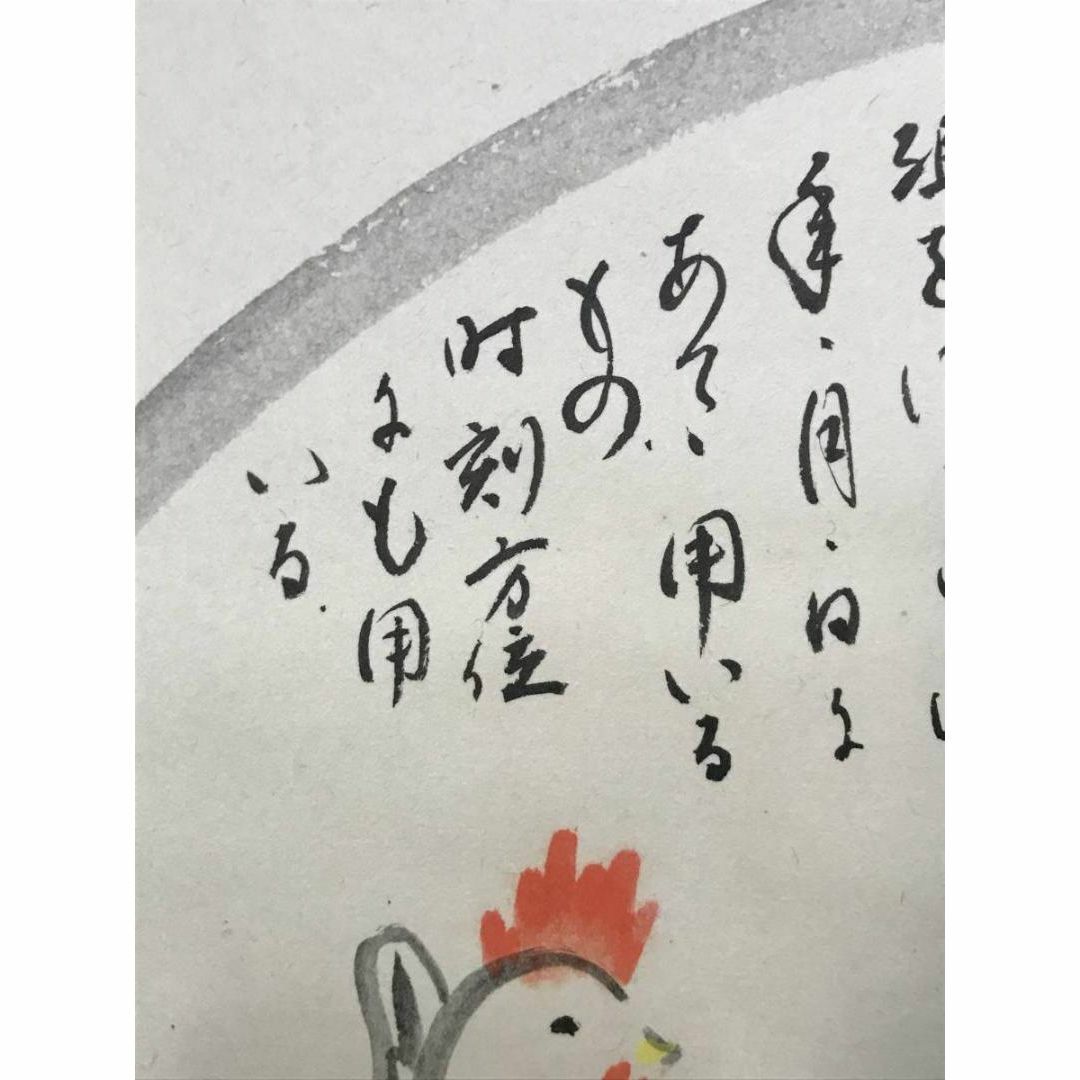 年・月・日に
あてゝ用いる
もの.
時刻方位
にも用
いる.